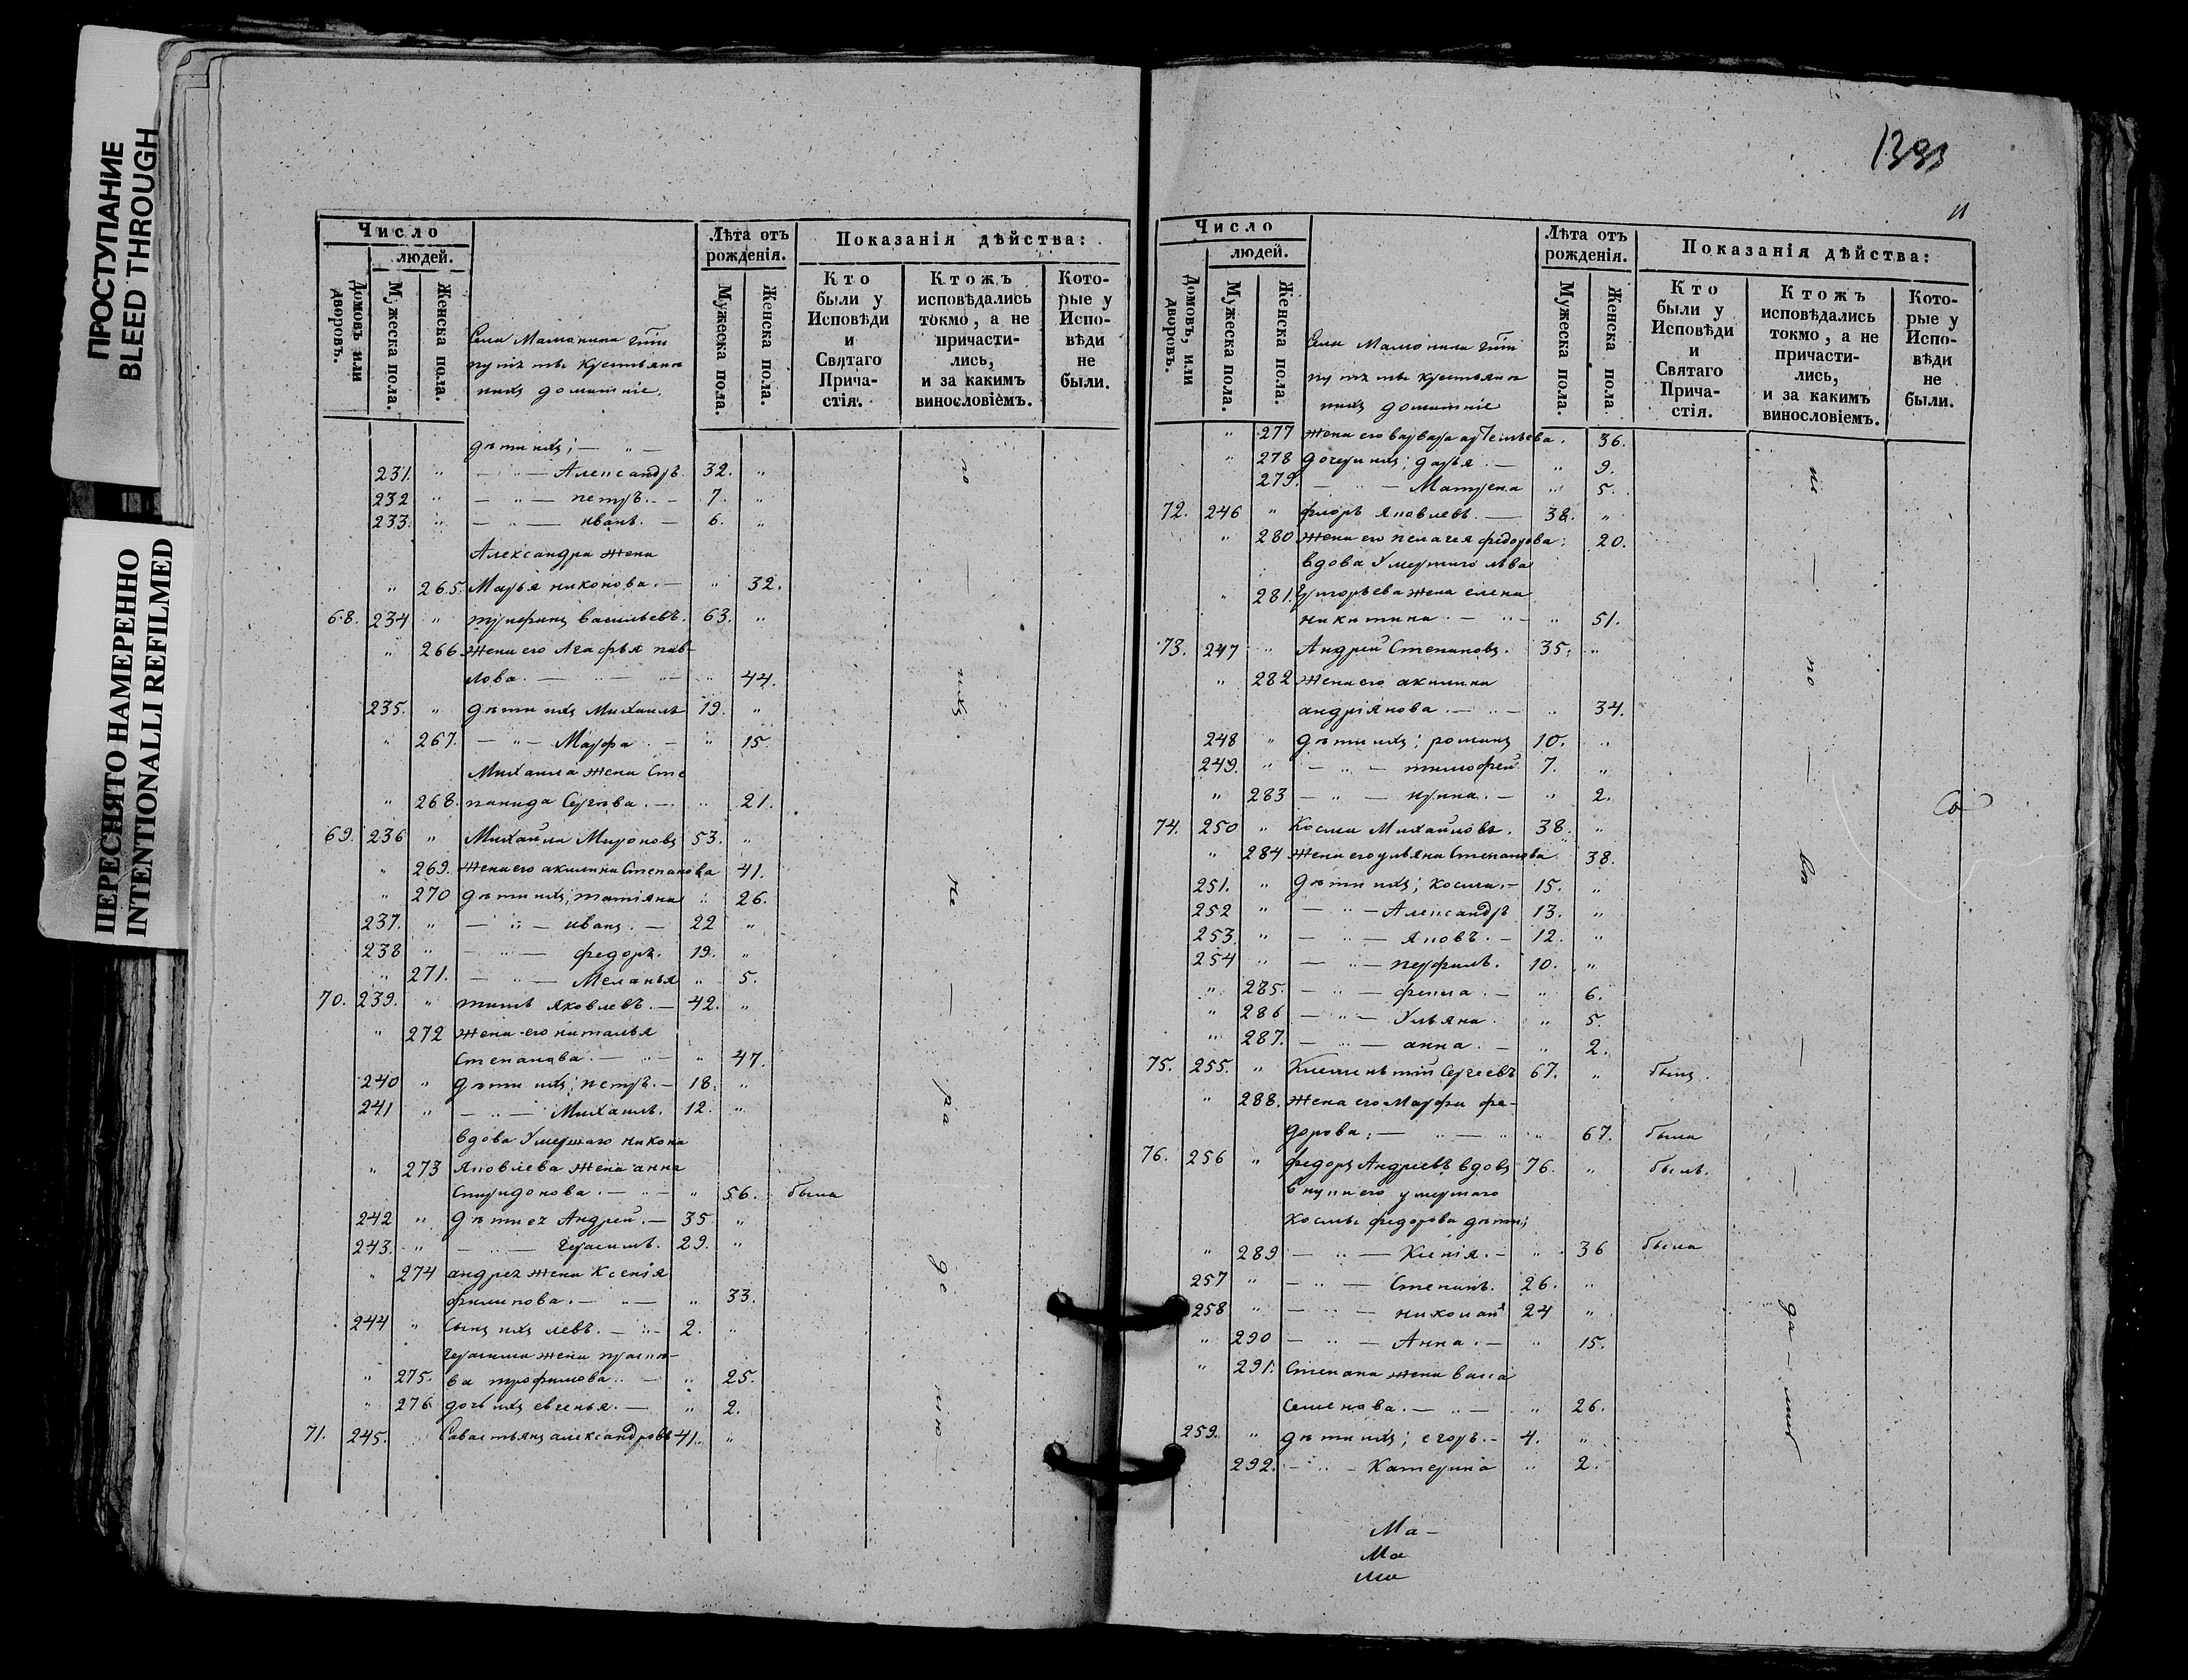 ПРОСТУПАНИЕ
BLEED THROUGH
ПЕРЕСНЯТО НАМЕРЕННО
INTENTIONALLI REFILMED
Число
людей.
Домовъ или дворовъ.
Мужеска пола.
Женска пола.
Села Мамонина
крестьяне
ихъ домашніе.
Лѣта отъ рожденія.
Мужеска пола.
Женска пола.
Показанія дѣйства:
Кто были у Исповѣди и Святаго Причастія.
Ктожъ исповѣдались токмо, а не причастились, и за какимъ винословіемъ.
Которые у Исповѣди не были.
дѣти ихъ; — „ —
231. „ — „ — Александръ 32. „
232 „ — „ — петръ. — 7. „
233. „ — „ — иванъ. — 6. „
Александра жена
„ 265. Марья никонова. — „ 32.
68. 234 „ трифонъ васильевъ. 63. „
„ 266 Жена его Агафья пав-
лова. — „ — „ 44.
235. „ дѣти ихъ Михаилъ 19. „
„ 267. — „ — Марфа — „ 15.
Михаила жена Сте
„ 268. панида Сергѣева. — „ 21.
69. 236 „ Михайла Мироновъ 53. „
„ 269. Жена его акилина Степанова 41.
„ 270 дѣти ихъ; татіяна „ 26.
237. „ — „ — иванъ. — 22 „
238 „ — „ — федоръ. 19. „
„ 271. — „ — Меланья „ 5.
70. 239. „ титъ яковлевъ. — 42. „
„ 272 Жена его наталья
Степанова. — „ — „ 47.
240 „ дѣти ихъ; петръ. — 18. „
241 „ — „ — Михаилъ. 12. „
вдова Умершаго никона
„ 273 яковлева жена анна
Спиридонова. — „ — „ 56. была
242 „ дѣти ея Андрей. — 35 „
243. „ — „ — Герасимъ. 29. „
„ 274 андрея жена Ксенія
филипова. — „ — „ 33.
244 „ Сынъ ихъ левъ. — „ — 2. „
Герасима жена праско-
„ 275. ва трофимова. — „ 25.
„ 276 дочь ихъ евгенья. — „ 2.
71. 245. Савастьянъ александровъ 41. „
1393
11
Число
людей.
Домовъ, или дворовъ.
Мужеска пола.
Женска пола.
Села Мамонина
крестьяне
ихъ домашніе
Лѣта отъ рожденія.
Мужеска пола.
Женска пола
Показанія дѣйства:
Кто были у Исповѣди и Святаго Причастія.
Ктожъ исповѣдались токмо, а не причастились, и за какимъ винословіемъ.
Которые у Исповѣди не были.
„ 277 Жена его варвара артемьева. 36.
„ 278 дочери ихъ; дарья. — „ 9.
279. — „ — Матрена „ 5.
72. 246 „ флоръ яковлевъ. — 38. „
„ 280 Жена его пелагея федорова; 20.
вдова Умершаго льва
„ 281. Григорьева жена елена
никитина. — „ — „ 51.
73. 247 „ Андрей Степановъ. 35. „
„ 282 Жена его акилина
андріянова. — „ — „ 34.
248 „ дѣти ихъ; романъ 10. „
249. „ — „ — тимофей. 7. „
„ 283 — „ — ирина. — „ 2.
74. 250 „ Косма Михайловъ. 38. „
„ 284 Жена его ульяна Степанова 38.
251. „ дѣти ихъ; косма. — 15. „
252 „ — „ — Александръ 13. „
253. „ — „ — яковъ. — 12. „
254 „ — „ — перфилъ. 10. „
„ 285. — „ — фекла. — „ 6.
„ 286 — „ — Ульяна. „ 5.
„ 287. — „ — анна. — „ 2.
75. 255. „ Климентій Сергеевъ 67. „ былъ.
„ 288. Жена его Марфа фе-
дорова; — „ — „ 67. была
76. 256 „ федоръ Андреевъ вдовъ 76. „ былъ.
внуки его умершаго
космы федорова дѣти;
„ 289 — „ — Ксенія. — „ 36 была
257 „ — „ — Степанъ. 26. „
258 „ — „ — николай 24 „
„ 290 — „ — Анна. — „ 15.
„ 291. Степана жена васса
семенова. — „ — „ 26.
259. „ дѣти ихъ; егоръ. — 4. „
292. — „ — Катерина „ 2.
Ма —
Ма